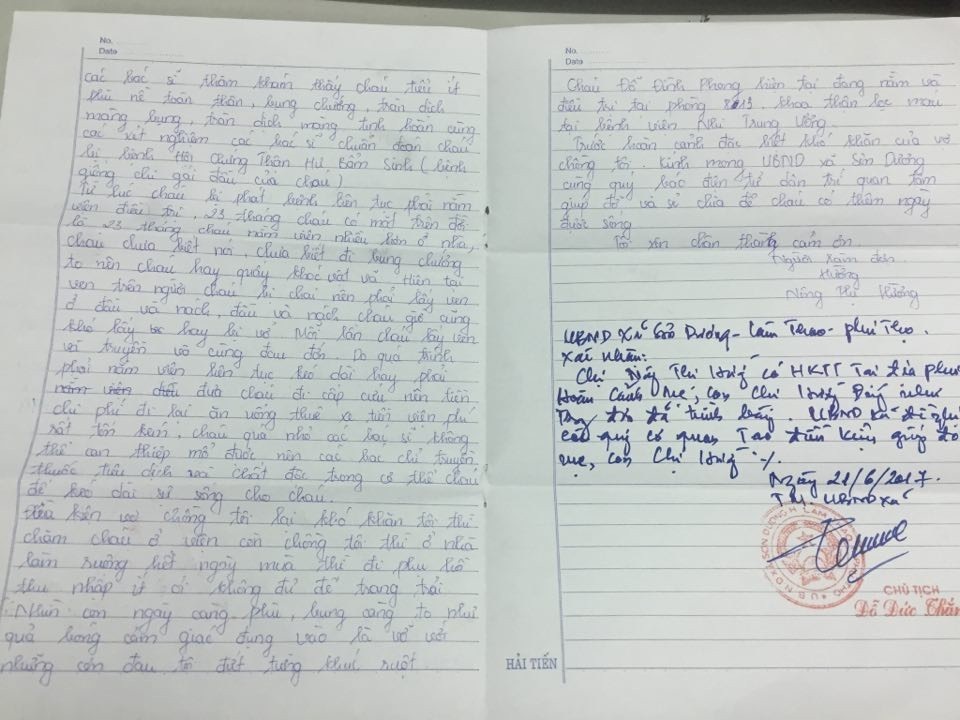 No.
Date
các bác sĩ thăm khám thấy cháu tiểu ít
phù nề toàn thân, bụng chướng, tràn dịch
màng bụng, tràn dịch màng tinh hoàn cùng
các xét nghiệm các bác sĩ chuẩn đoán cháu
bị bệnh Hội Chứng Thận Hư Bẩm Sinh (bệnh
giống chị gái đầu của cháu)
Từ lúc cháu bị phát bệnh liên tục phải nằm
viện điều trị, 23 tháng cháu có mặt trên đời
là 23 tháng cháu nằm viện nhiều hơn ở nhà,
cháu chưa biết nói, chưa biết đi bụng chướng
to nên cháu hay quấy khóc vật vã. Hiện tại
ven trên người cháu bị chai nên phải lấy ven
ở đầu và nách, đầu và nách cháu giờ cũng
khó lấy hay bị vỡ. Mỗi lần cháu lấy ven
và truyền vô cùng đau đớn. Do quá trình
phải nằm viện liên tục kéo dài hay phải
nằm viện điều đưa cháu đi cấp cứu nên tiền
chi phí đi lại ăn uống thuê xe tiền viện phí
rất tốn kém, cháu quá nhỏ các bác sĩ không
thể can thiệp mổ được nên các bác chỉ truyền
thuốc tiêu dịch và chất độc trong cơ thể cháu
để kéo dài sự sống cho cháu.
kiện vợ chồng tôi lại khó khăn tôi thì
chăm cháu ở viện còn chồng tôi thì ở nhà
làm ruộng hết ngày mùa thì đi phụ hồ
thu nhập ít ỏi không đủ để trang trải
Nhìn con ngày càng phù, bụng càng to như
quả bóng cảm giác đụng vào là vỡ với
những cơn đau tôi đứt từng khúc ruột.
No.
Date
Cháu Đỗ Đình Phong hiện tại đang nằm và
điều trị tại phòng 8013. khoa thận lọc máu
tại bệnh viện Nhi Trung Ương.
Trước hoàn cảnh đặc biệt khó khăn của vợ
chồng tôi. Kính mong UBND xã Sơn Dương
cùng quý báo điện tử dân trí quan tâm
giúp đỡ và sẻ chia để cháu có thêm ngày
được sống
Tôi xin chân thành cám ơn.
Người làm đơn
Hường
Nông Thị Hường
UBND Xã Sơn Dương - Lâm Thao - Phú Thọ.
Xác nhận:
Chị Nông Thị Hường có HKTT Tại địa phư
Hoàn cảnh mẹ, con Chị Hường Đúng như
đã trình bày. UBND xã đề nghị
các quý cơ quan Tạo điều kiện giúp đỡ
mẹ, con Chị Hường ./.
Ngày 21/6/2017.
T.M UBND xã
CHỦ TỊCH
Đỗ Đức Thắn
HẢI TIẾN